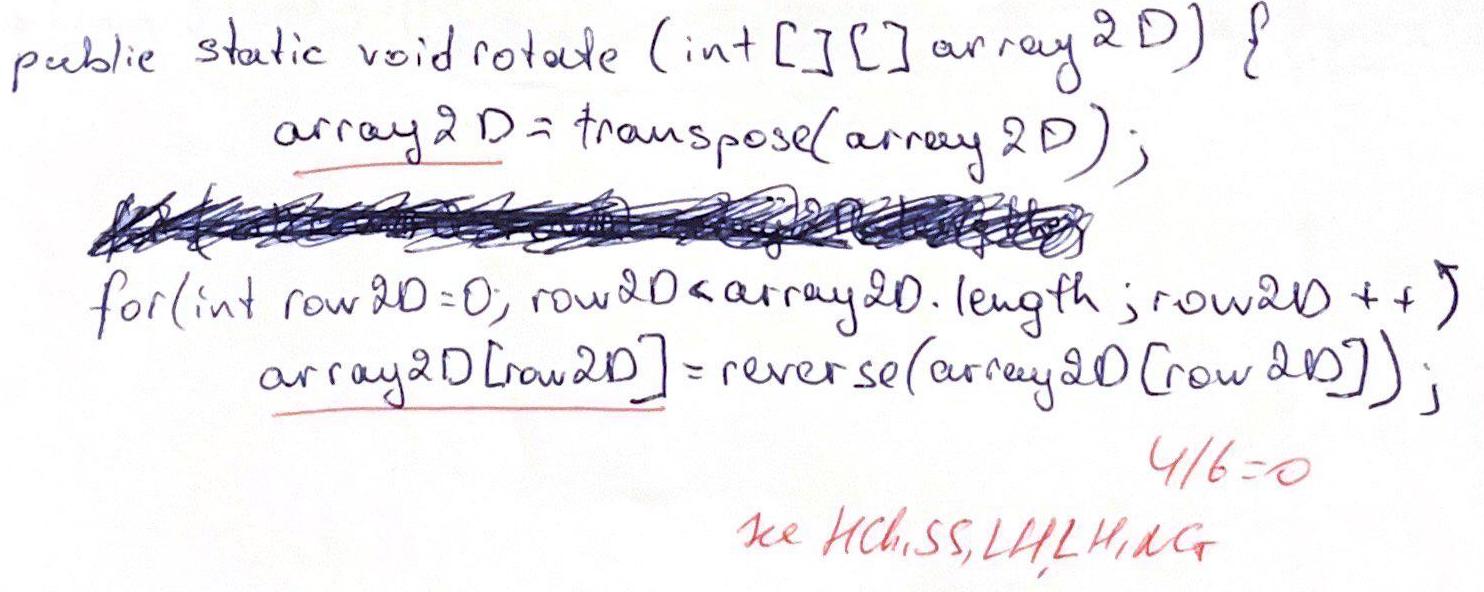 public static void rotate (int [] [] array 2D) {
array 2D = transpose(array 2D);
for(int row2D=0; row2D<array2D.length; row2D++)
array2D[row2D] = reverse(array2D[row2D]);
4/6=0
see HCh, SS, LH, LH,